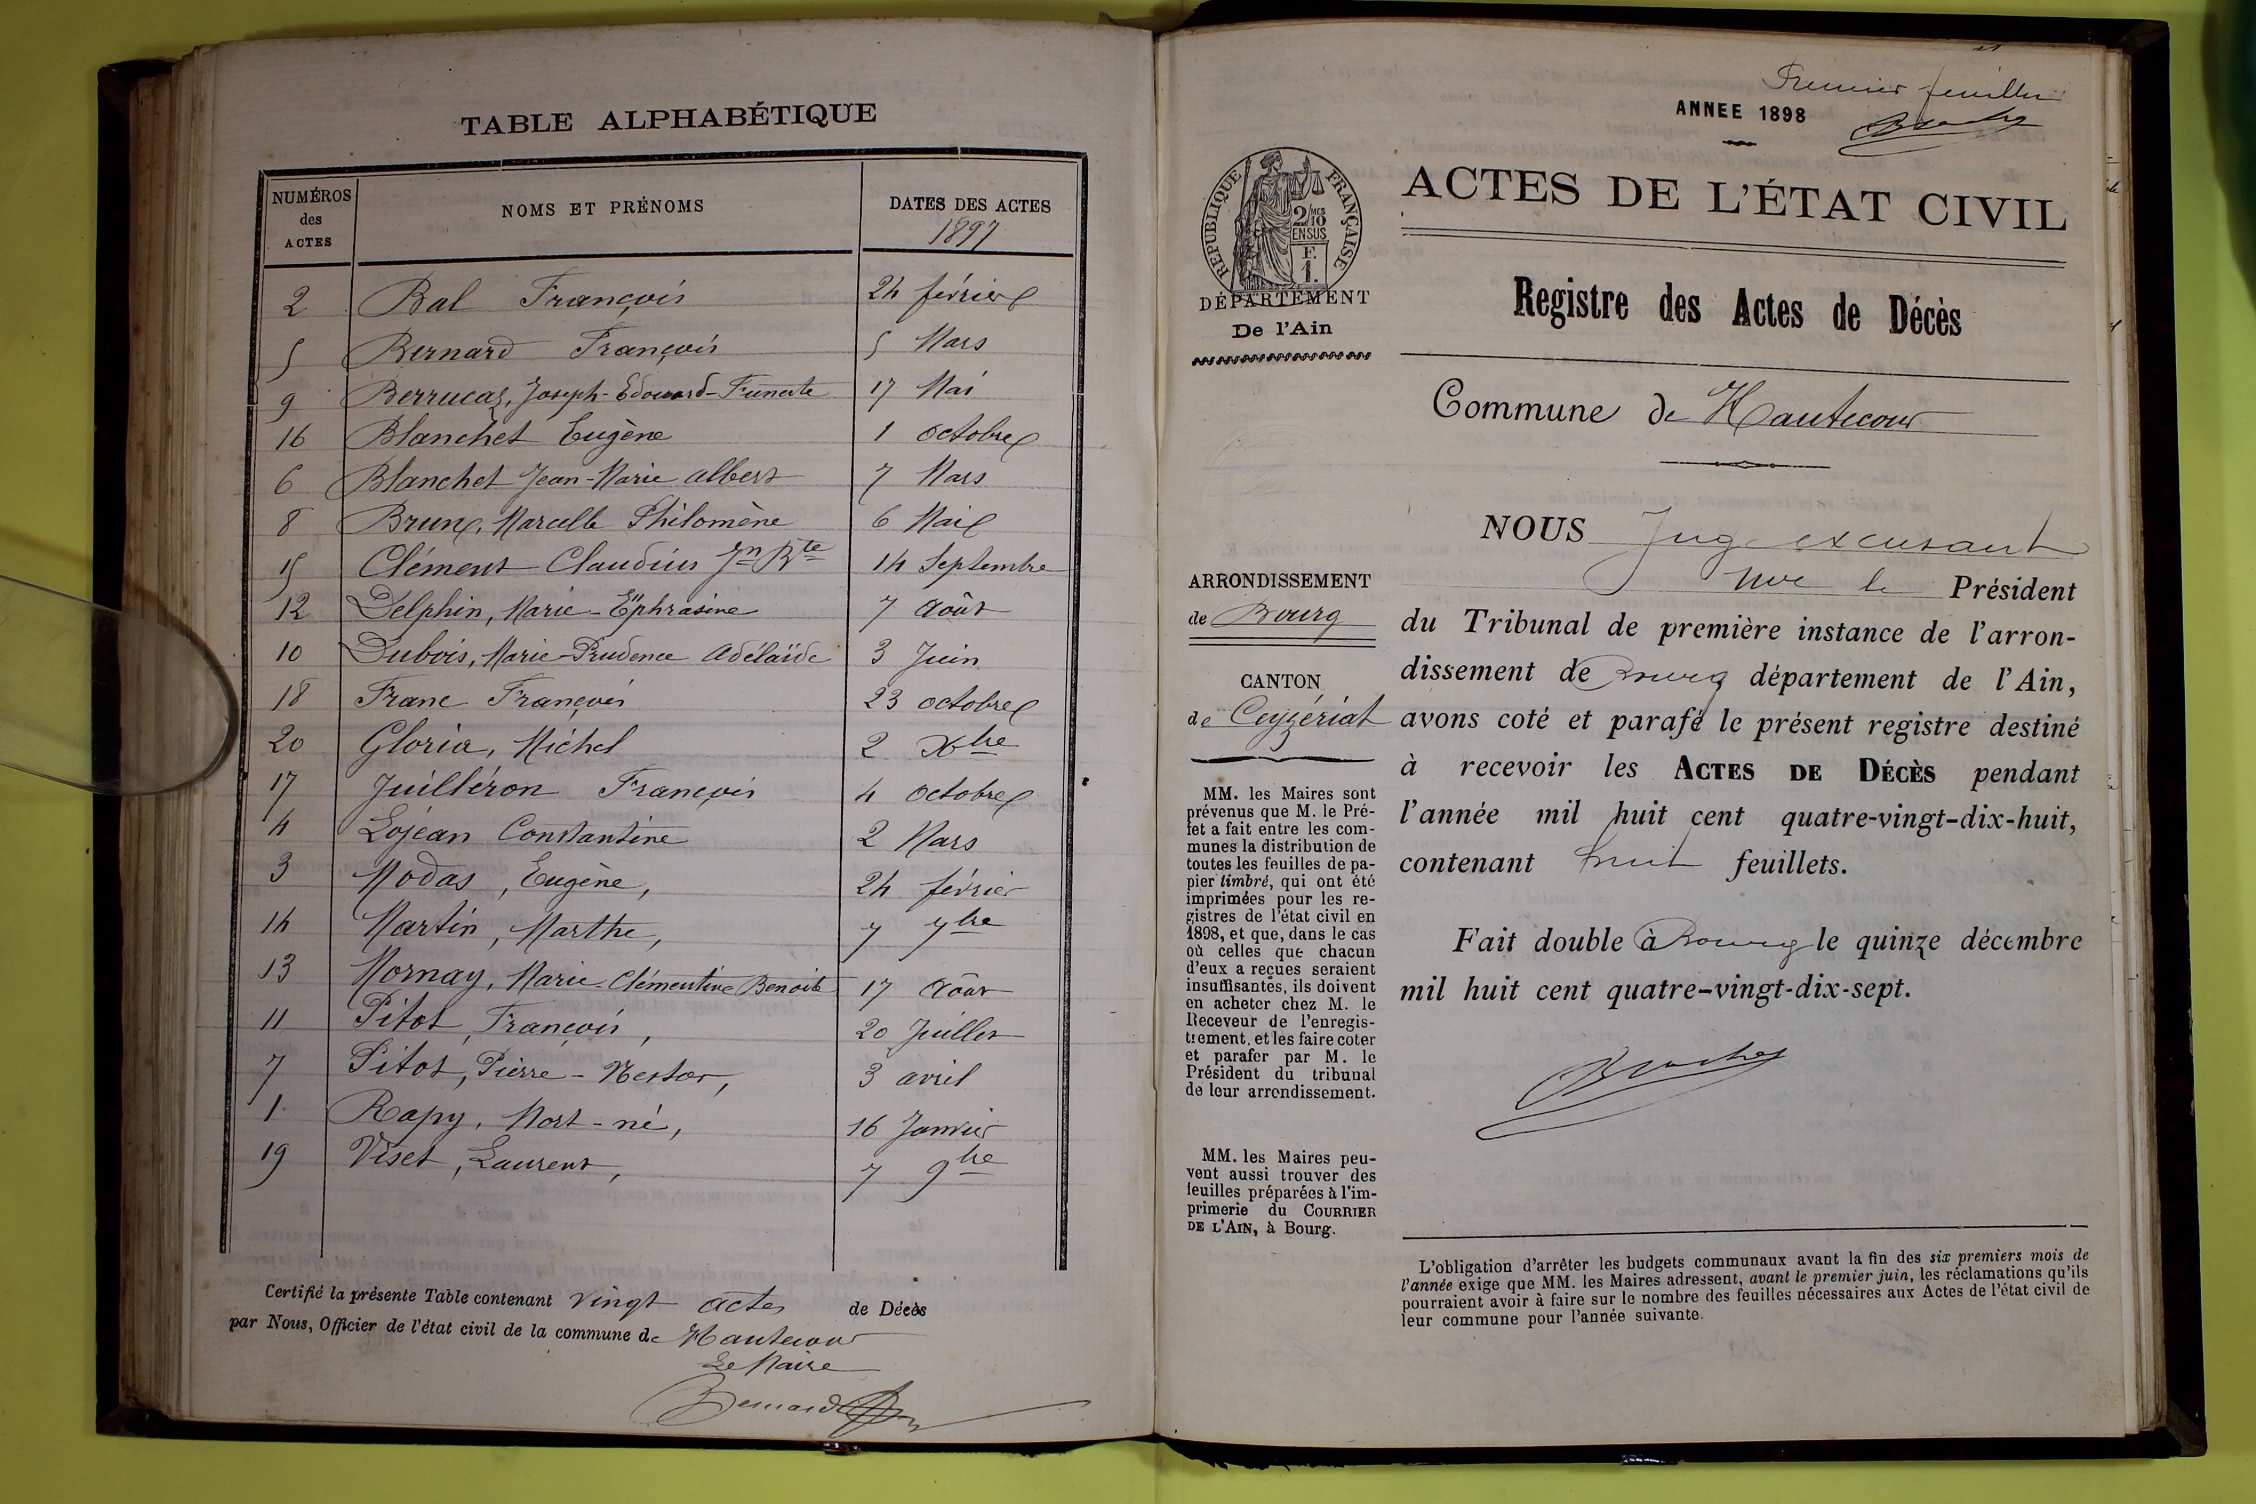 TABLE ALPHABÉTIQUE
NUMÉROS des ACTES
NOMS ET PRÉNOMS
DATES DES ACTES
1897
2 Bal François 24 février
5 Bernard François 5 Mars
9 Berrucaz, Joseph-Edouard- 17 Mai
16 Blanchet Eugène 1 octobre
6 Blanchet Jean-Marie albert 7 Mars
8 Brun, Marcelle Philomène 6 Mai
15 Clément Claudius Jn Bte 14 Septembre
12 Delphin, Marie-Eüphrasine 7 Août
10 Dubois, Marie-Prudence Adélaïde 3 Juin
18 Franc François 23 octobre
20 Gloria, Michel 2 Xbre
17 Juilléron François 4 octobre
4 Lojean Constantine 2 Mars
3 Modas, Eugène, 24 février
14 Martin, Marthe, 7 7bre
13 Mornay, Marie-Clémentine Benoite 17 Août
11 Pitot, François, 20 Juillet
7 Pitot, Pierre-Nestor, 3 avril
1 Rapy, Mort-né, 16 Janvier
19 Viset, Laurent, 7 9bre
Certifié la présente Table contenant vingt actes de Décès
par Nous, Officier de l'état civil de la commune de Hautecour
Le Maire
Bernard
Premier feuillet
ANNEE 1898
RÉPUBLIQUE FRANÇAISE
2/10
EN SUS
F.
1.
ACTES DE L'ÉTAT CIVIL
DÉPARTEMENT
De l'Ain
Registre des Actes de Décès
Commune de Hautecour
ARRONDISSEMENT
de Bourg
CANTON
de Ceyzériat
MM. les Maires sont
prévenus que M. le Pré-
fet a fait entre les com-
munes la distribution de
toutes les feuilles de pa-
pier timbré, qui ont été
imprimées pour les re-
gistres de l'état civil en
1898, et que, dans le cas
où celles que chacun
d'eux a reçues seraient
insuffisantes, ils doivent
en acheter chez M. le
Receveur de l'enregis-
trement, et les faire coter
et parafer par M. le
Président du tribunal
de leur arrondissement.
MM. les Maires peu-
vent aussi trouver des
feuilles préparées à l'im-
primerie du COURRIER
DE L'AIN, à Bourg.
NOUS Juge
le Président
du Tribunal de première instance de l'arron-
dissement de Bourg département de l'Ain,
avons coté et parafé le présent registre destiné
à recevoir les ACTES DE DÉCÈS pendant
l'année mil huit cent quatre-vingt-dix-huit,
contenant huit feuillets.
Fait double à Bourg le quinze décembre
mil huit cent quatre-vingt-dix-sept.
L'obligation d'arrêter les budgets communaux avant la fin des six premiers mois de
l'année exige que MM. les Maires adressent, avant le premier juin, les réclamations qu'ils
pourraient avoir à faire sur le nombre des feuilles nécessaires aux Actes de l'état civil de
leur commune pour l'année suivante.